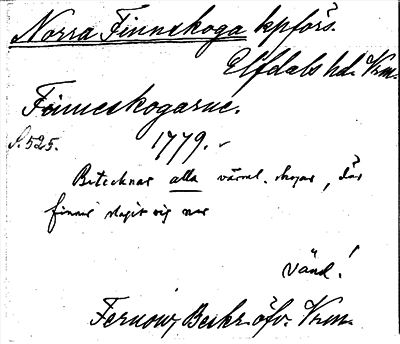 Norra Finnskoga kpförs.
Elfdals hd. Vrm.
Finneskogarne.
S. 525. 1779.
Betecknar alla värml. skogar, där
finnar slagit sig ner
Vänd!
Fernow, Beskr. öfv. Vrm.